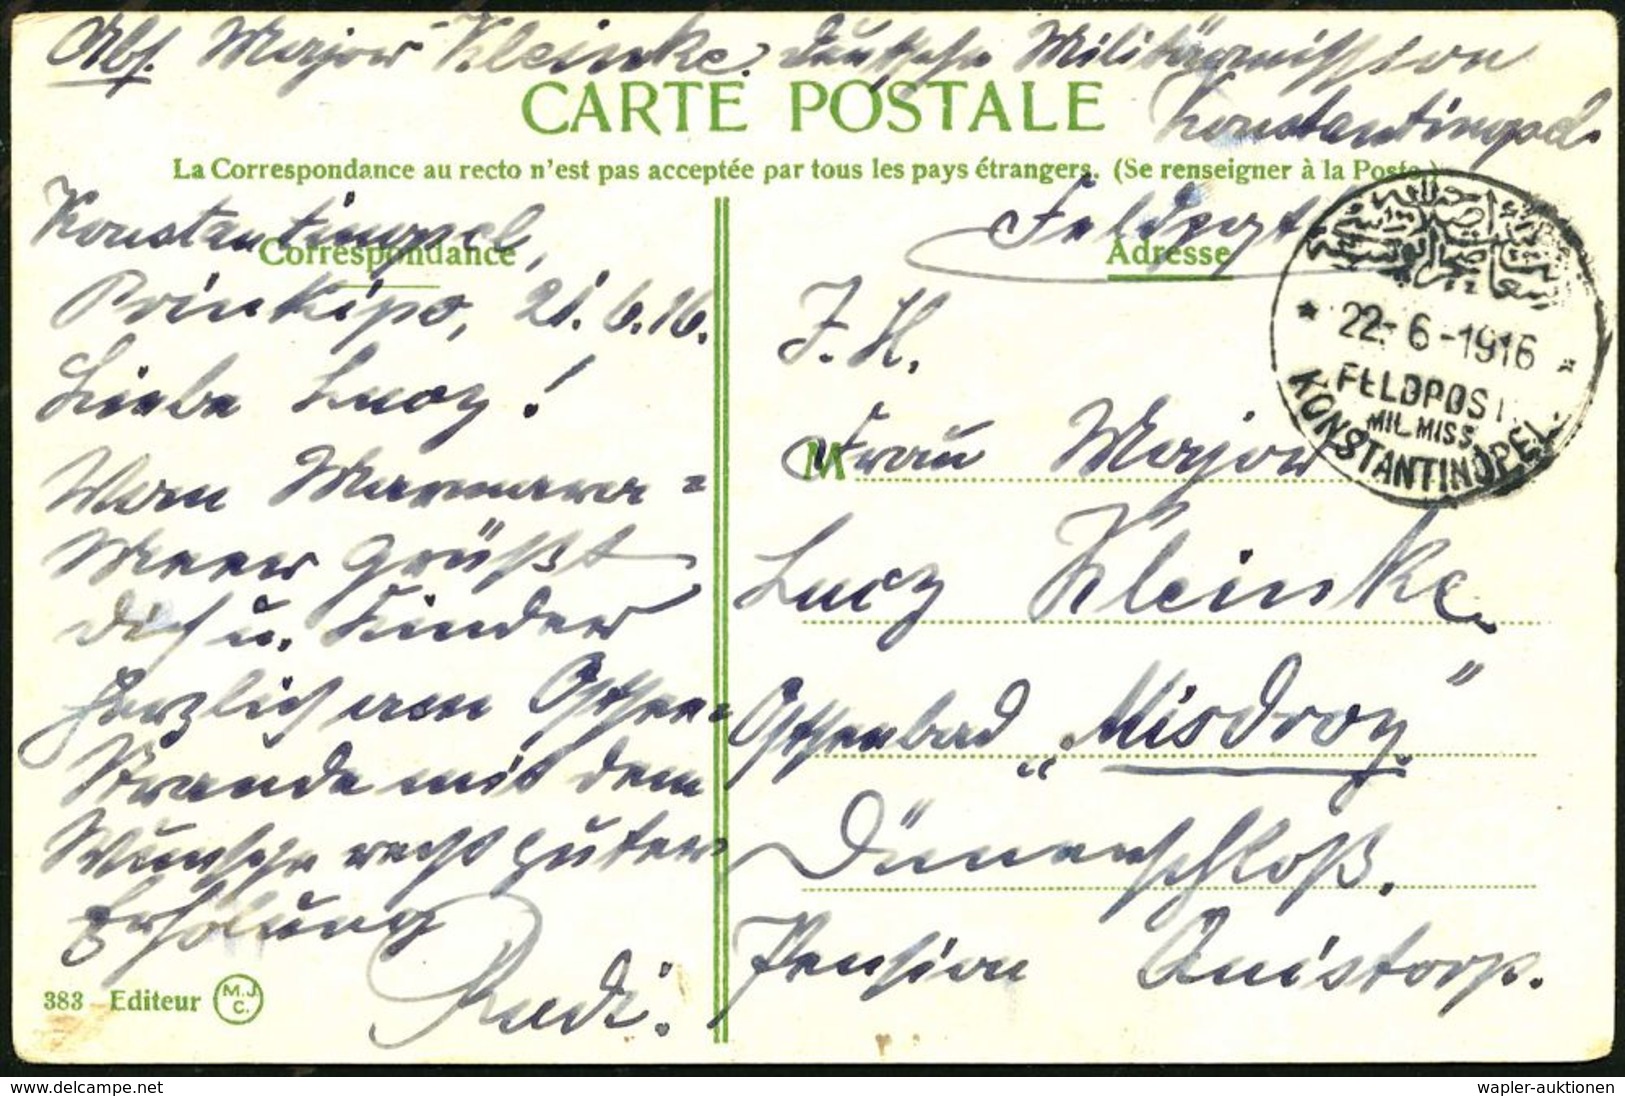 Abs. Major Kleinke. Deutsche Militärmission
Konstantinopel.
CARTE POSTALE
La Correspondance au recto n'est pas acceptée par tous les pays étrangers. (Se renseigner à la Poste.)
Konstantinopel,
Correspondance
Prinkipo, 21.6.16.
Liebe Lucy!
Vom Marmara=
Meer grüßt
dich u. Kinder
herzlich am Ostsee=
Strande mit dem
Wunsche recht guter
Erholung
Rudi.
383 Editeur M.J.C.
Feldpost
Adresse
22-6-1916
FELDPOST
MIL. MISS.
KONSTANTINOPEL
I. H.
M
Frau Major
Lucy Kleinke.
Ostseebad „Misdroy"
Dünenschloß.
Pension Quistorp.
delcampe.net
wapler-auktionen